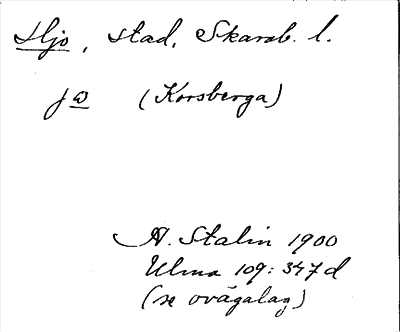 Hjo, stad, Skarab. l.
jω (Korsberga)
A. Stalin 1900
Ulma 109:347 d
(se ovägalag)